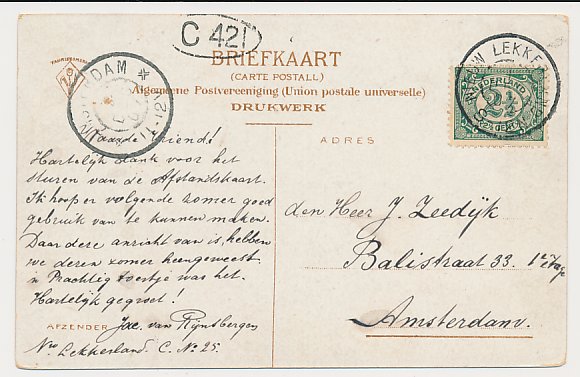 C 421
BRIEFKAART
(CARTE POSTALL)
Algemeene Postvereeniging (Union postale universelle)
DRUKWERK
DAM
LEKKE
NEDERLAND
2½
CENT
Waarde Vriend!
Hartelijk dank voor het
sturen van de Afstandskaart.
Ik hoop er volgende zomer goed
gebruik van te kunnen maken.
Daar deze anzicht van is, hebben
we deren zomer heengeweest
'n Prachtig toestje was het.
Hartelijk gegroet!
AFZENDER Jac. van Rijnsbergen
Nw Lekkerland. C. No 25.
ADRES
den Heer J. Zeedijk
Balistraat 33. 1e Etage
Amsterdam.